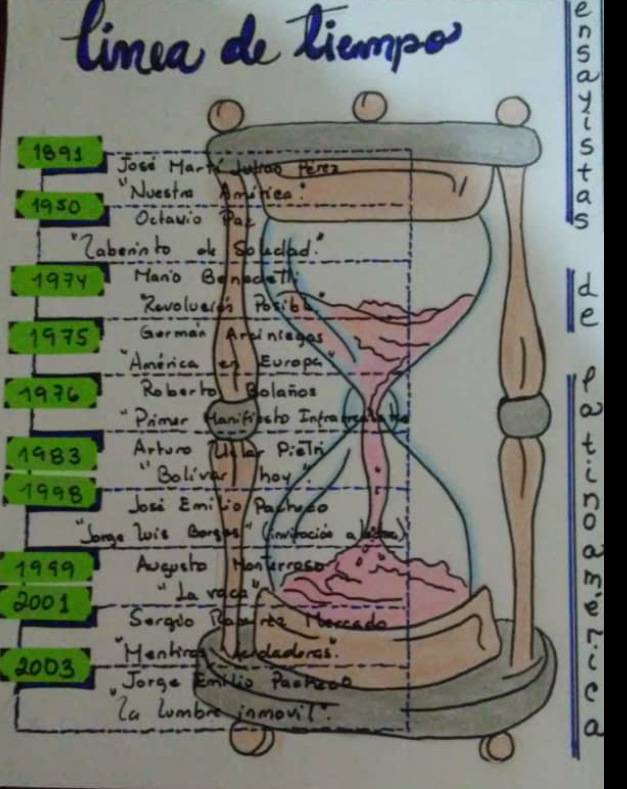 línea de tiempo
ensayistas de latinoamérica
1891
José Martí Julián Pérez
"Nuestra América."
1950
Octavio Paz
"Laberinto de Soledad."
1974
Mario Benedetti
"Revolución Posible."
1975
Germán Arciniegas
"América en Europa"
1976
Roberto Bolaños
"Primer Manifiesto Infrarrealista
1983
Arturo Uslar Pietri
"Bolívar hoy"
1998
José Emilio Pacheco
"Jorge Luis Borges" (invitación a
1999
Augusto Monterroso
"La vaca"
2001
Sergio Mercado
"Mentiras Verdaderas".
2003
Jorge Emilio Pacheco
"la lumbre inmovil".